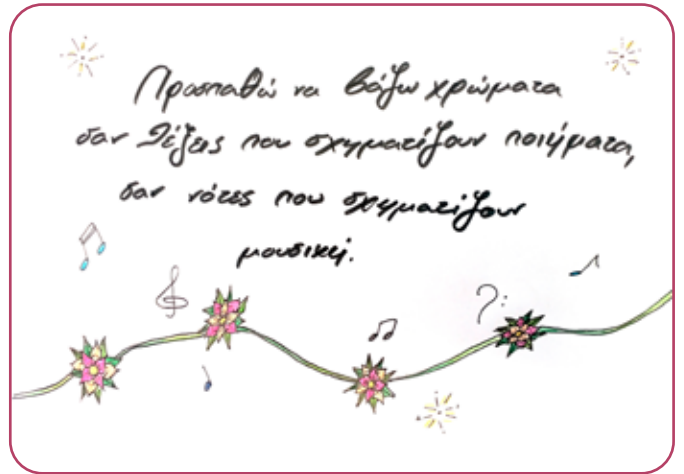 Προσπαθώ να βάζω χρώματα
σαν λέξεις που σχηματίζουν ποιήματα,
σαν νότες που σχηματίζουν
μουσική.